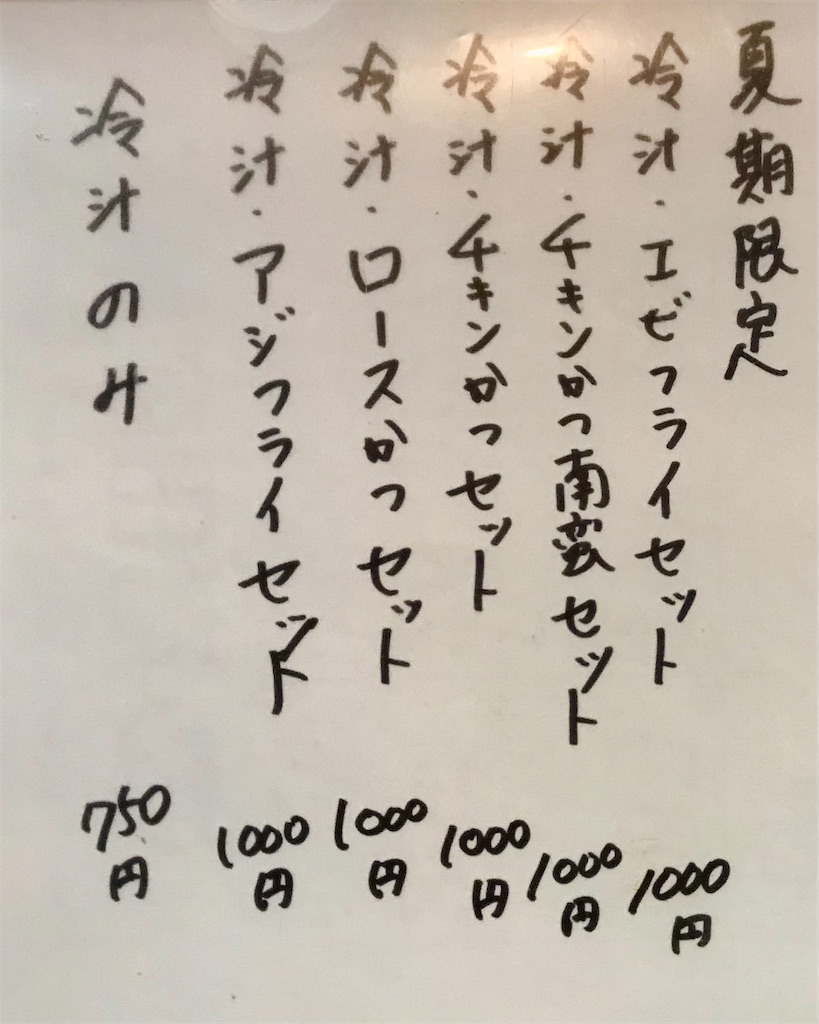 夏期限定
冷汁・エビフライセット 1000円
冷汁・チキンかつ南蛮セット 1000円
冷汁・チキンかつセット 1000円
冷汁・ロースかつセット 1000円
冷汁・アジフライセット 1000円
冷汁のみ 750円